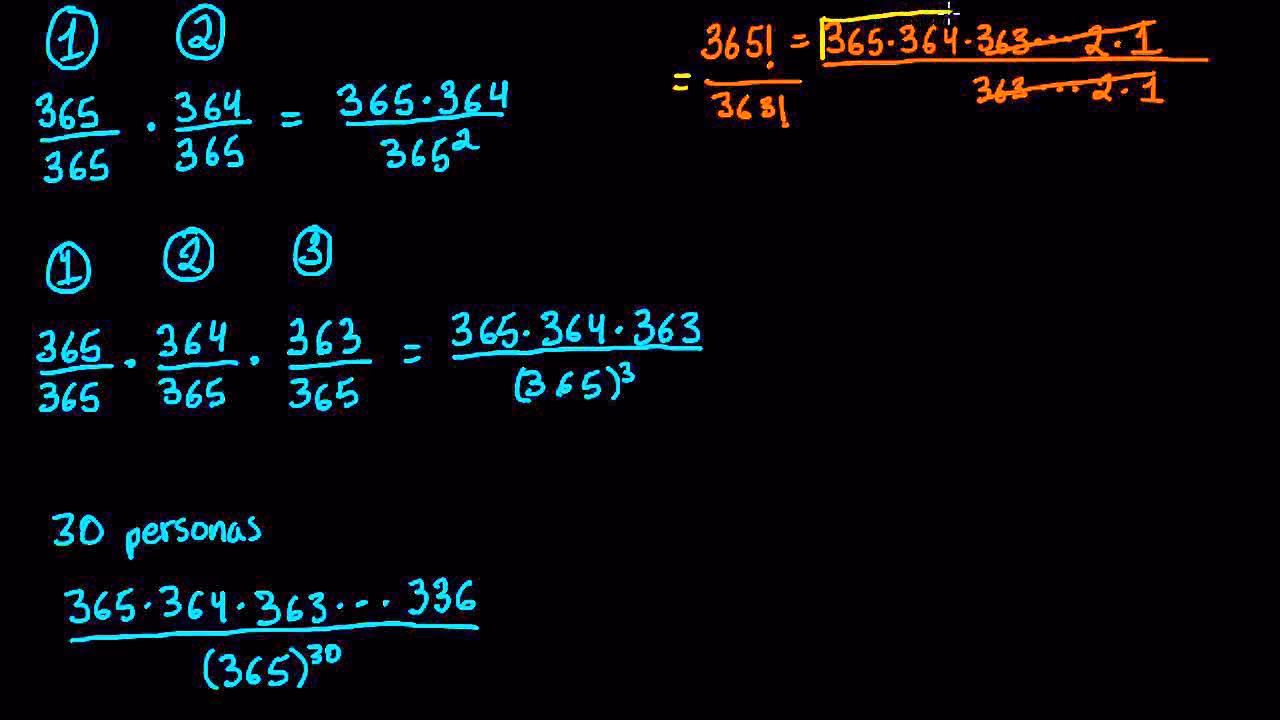 ① ②
365/365 · 364/365 = 365·364/365²
= 365!/363! = 365·364·363··· 2·1/363··· 2·1
① ② ③
365/365 · 364/365 · 363/365 = 365·364·363/(365)³
30 personas
365·364·363··· 336/(365)³⁰